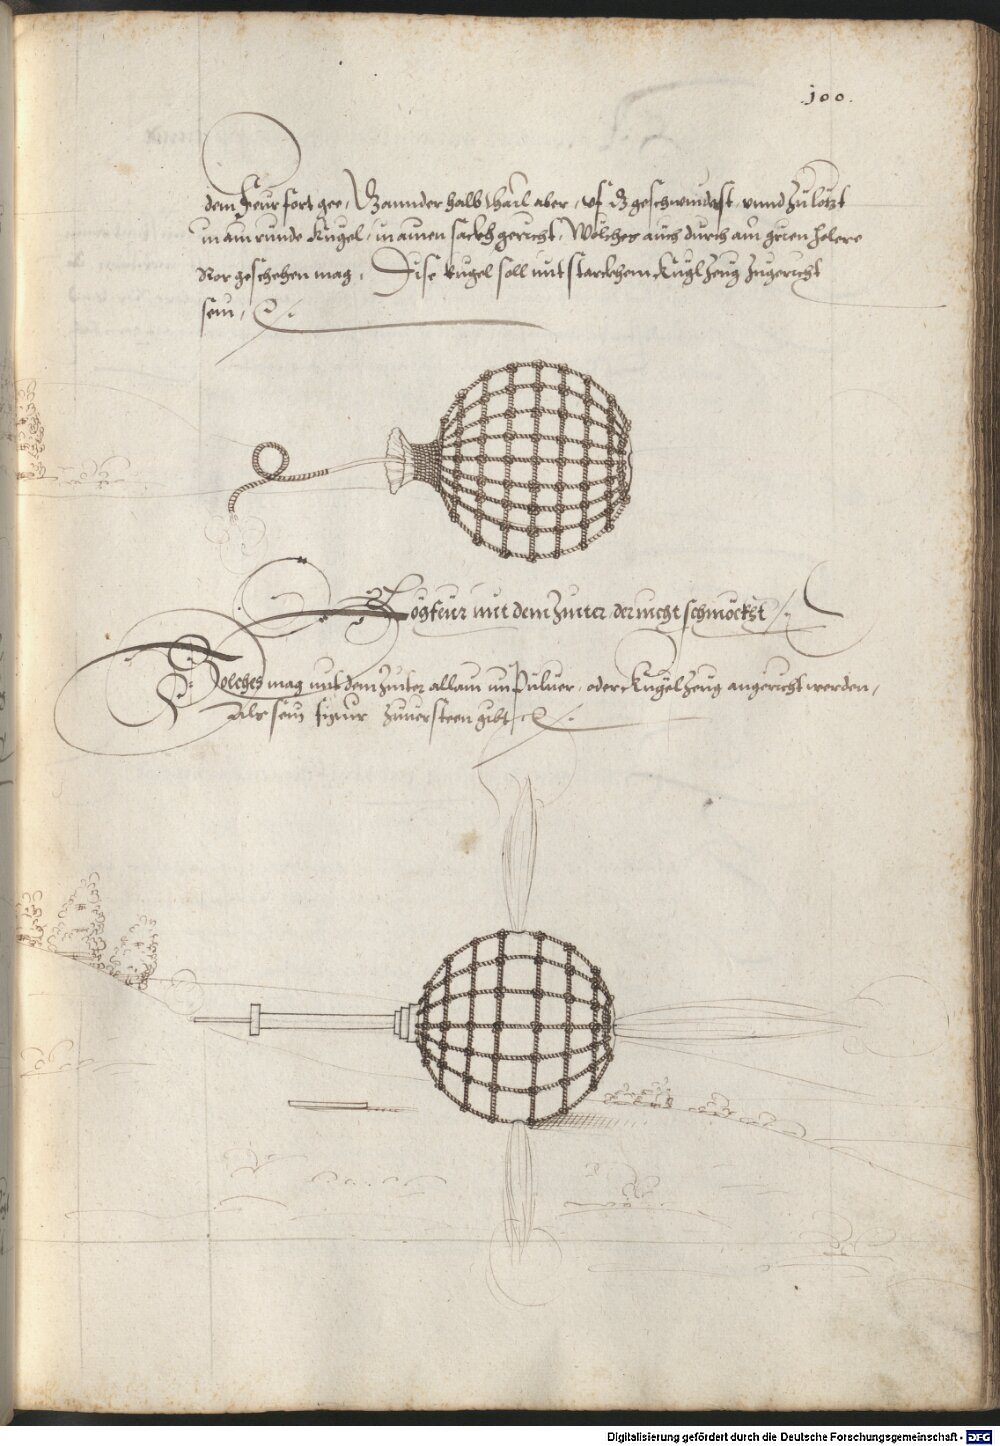 .100.
dem Feur fort gee, Wannder halb thail aber, uf dz geschwindest, unnd zu letzt
in ain runde Kugel, in ainen sackh gericht, Wölches auch durch ain
Ror geschehen mag, Dise kugel soll mit starckhem Kugl Zeug Zugericht
sein,
mit dem Zinter, der nicht schmöckst
Solches mag mit dem Zinter allain im Puluer, oder Kugel Zeug angericht werden,
sein figur Zuuersteen gibt
Digitalisierung gefördert durch die Deutsche Forschungsgemeinschaft - DFG